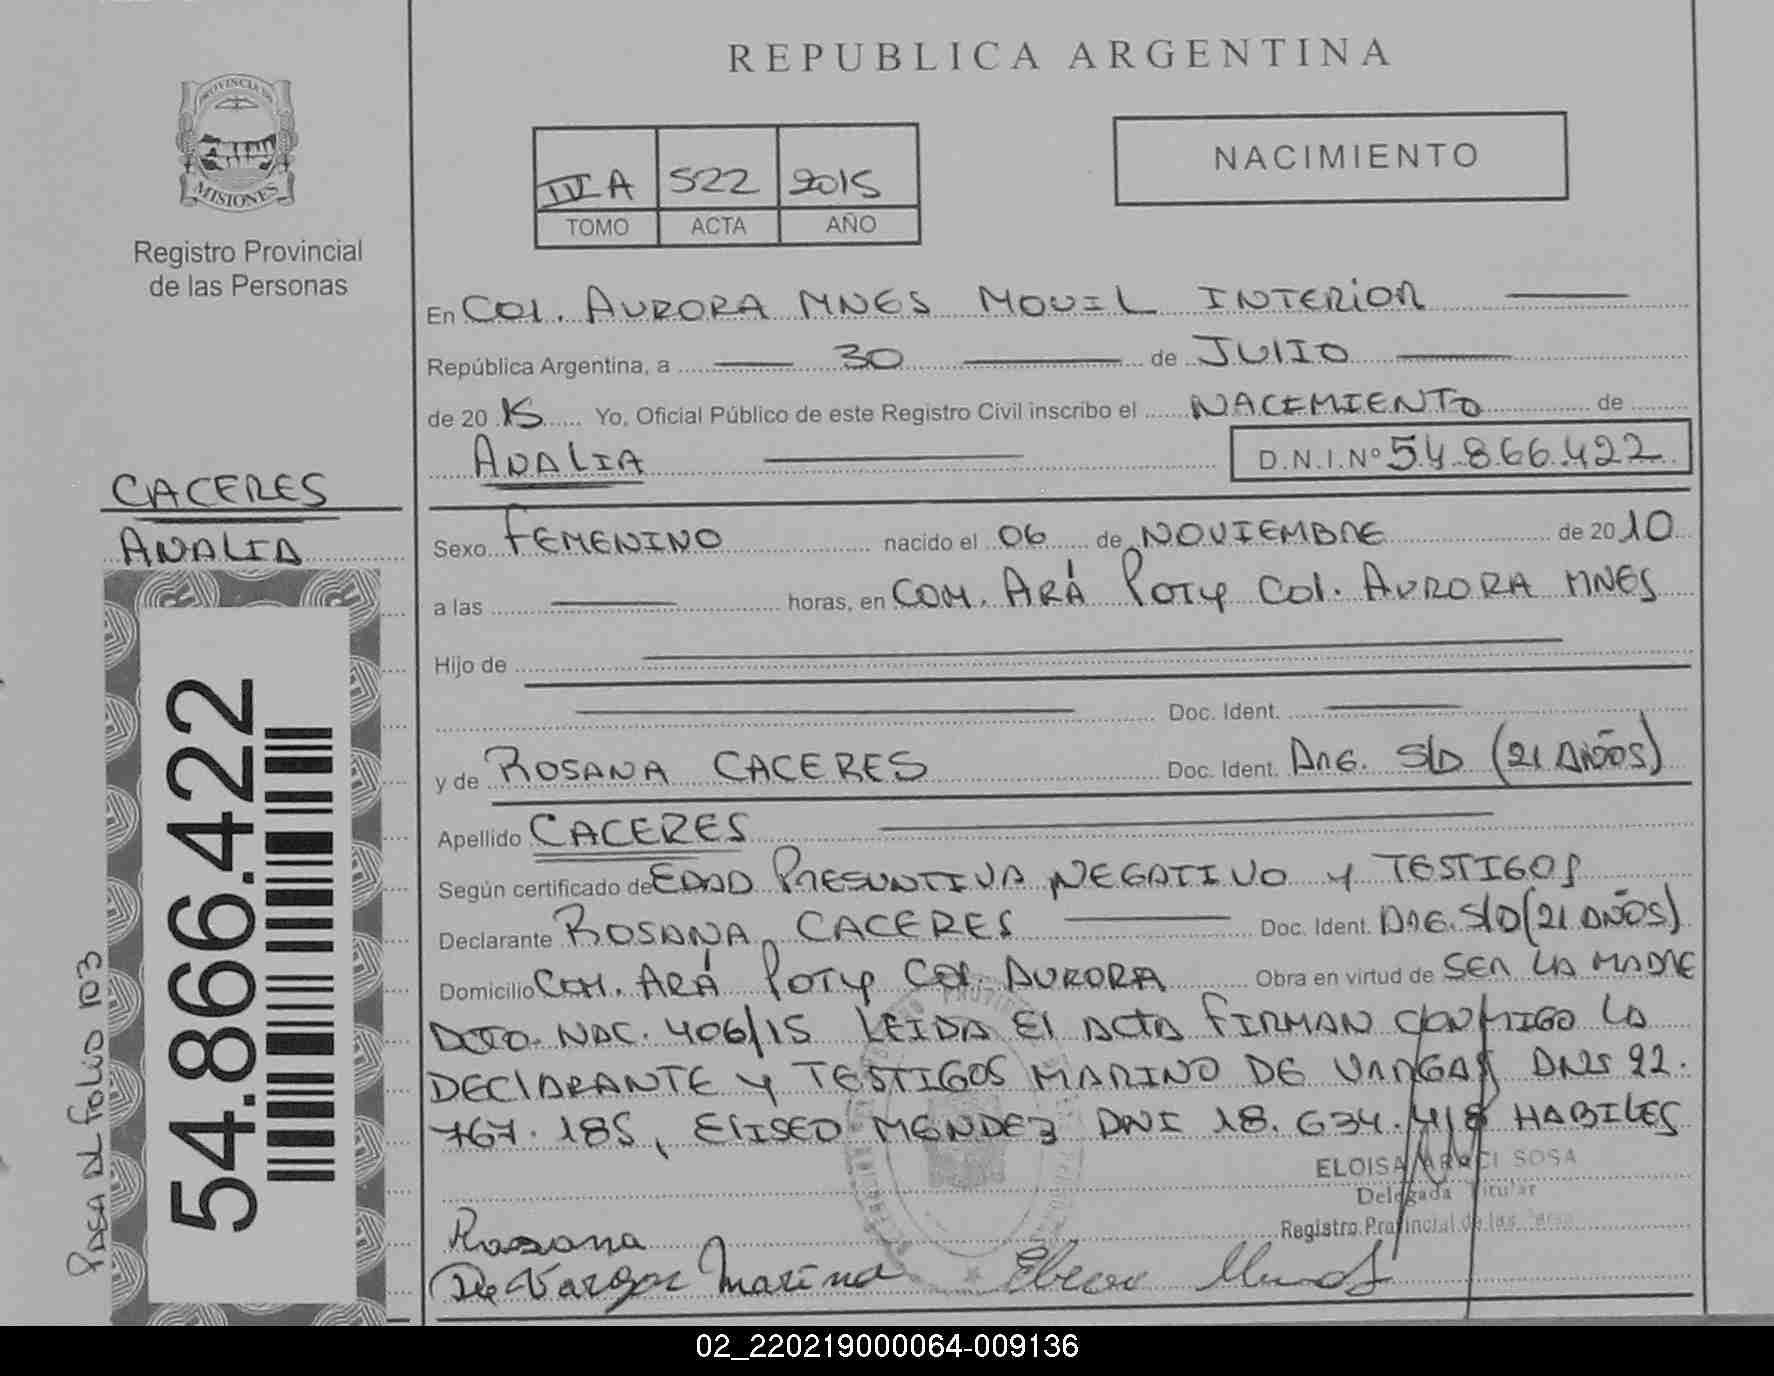 REPUBLICA ARGENTINA
PROVINCIA DE
MISIONES
Registro Provincial
de las Personas
IV A 522 2015
TOMO ACTA AÑO
NACIMIENTO
En COL. AURORA MNES MOVIL INTERIOR
República Argentina, a 30 de JULIO
de 20 15 Yo, Oficial Público de este Registro Civil inscribo el NACIMIENTO de
ANALIA D.N.I.Nº 54.866.422
CACERES
ANALIA
Sexo FEMENINO nacido el 06 de NOVIEMBRE de 20 10
a las horas, en COM. ARÁ POTY COL. AURORA MNES
Hijo de
Doc. Ident.
y de ROSANA CACERES Doc. Ident. ARG. S/D (21 AÑOS)
Apellido CACERES
Según certificado de EDAD PRESUNTIVA NEGATIVO Y TESTIGOS
Declarante ROSANA CACERES Doc. Ident. ARG. S/D (21 AÑOS)
Domicilio COM. ARÁ POTY COL. AURORA Obra en virtud de SER LA MADRE
DCTO. NAC. 406/15 LEIDA EL ACTA FIRMAN CONMIGO LA
DECLARANTE Y TESTIGOS MARINO DE VARGAS DNI 92.
767.185, ELISEO MENDEZ DNI 18.634.418 HABILES
ELOISA ARACI SOSA
Delegada Titular
Registro Provincial de las
Rosana
De Vargas Marino
54.866.422
PASA AL FOLIO 103
02_220219000064-009136